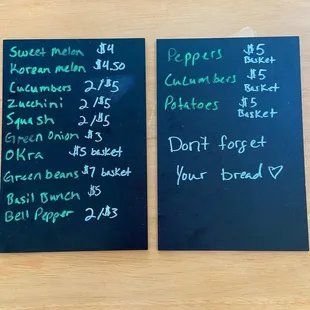 Sweet melon $4
Korean melon $4.50
Cucumbers 2/$5
Zuchini 2/$5
Squash 2/$5
Green Onion $3
Okra $5 basket
Green beans $7 basket
Basil Bunch $5
Bell Pepper 2/$3
Peppers $5 Basket
Cucumbers $5 Basket
Potatoes $5 Basket
Don't forget
Your bread ♡